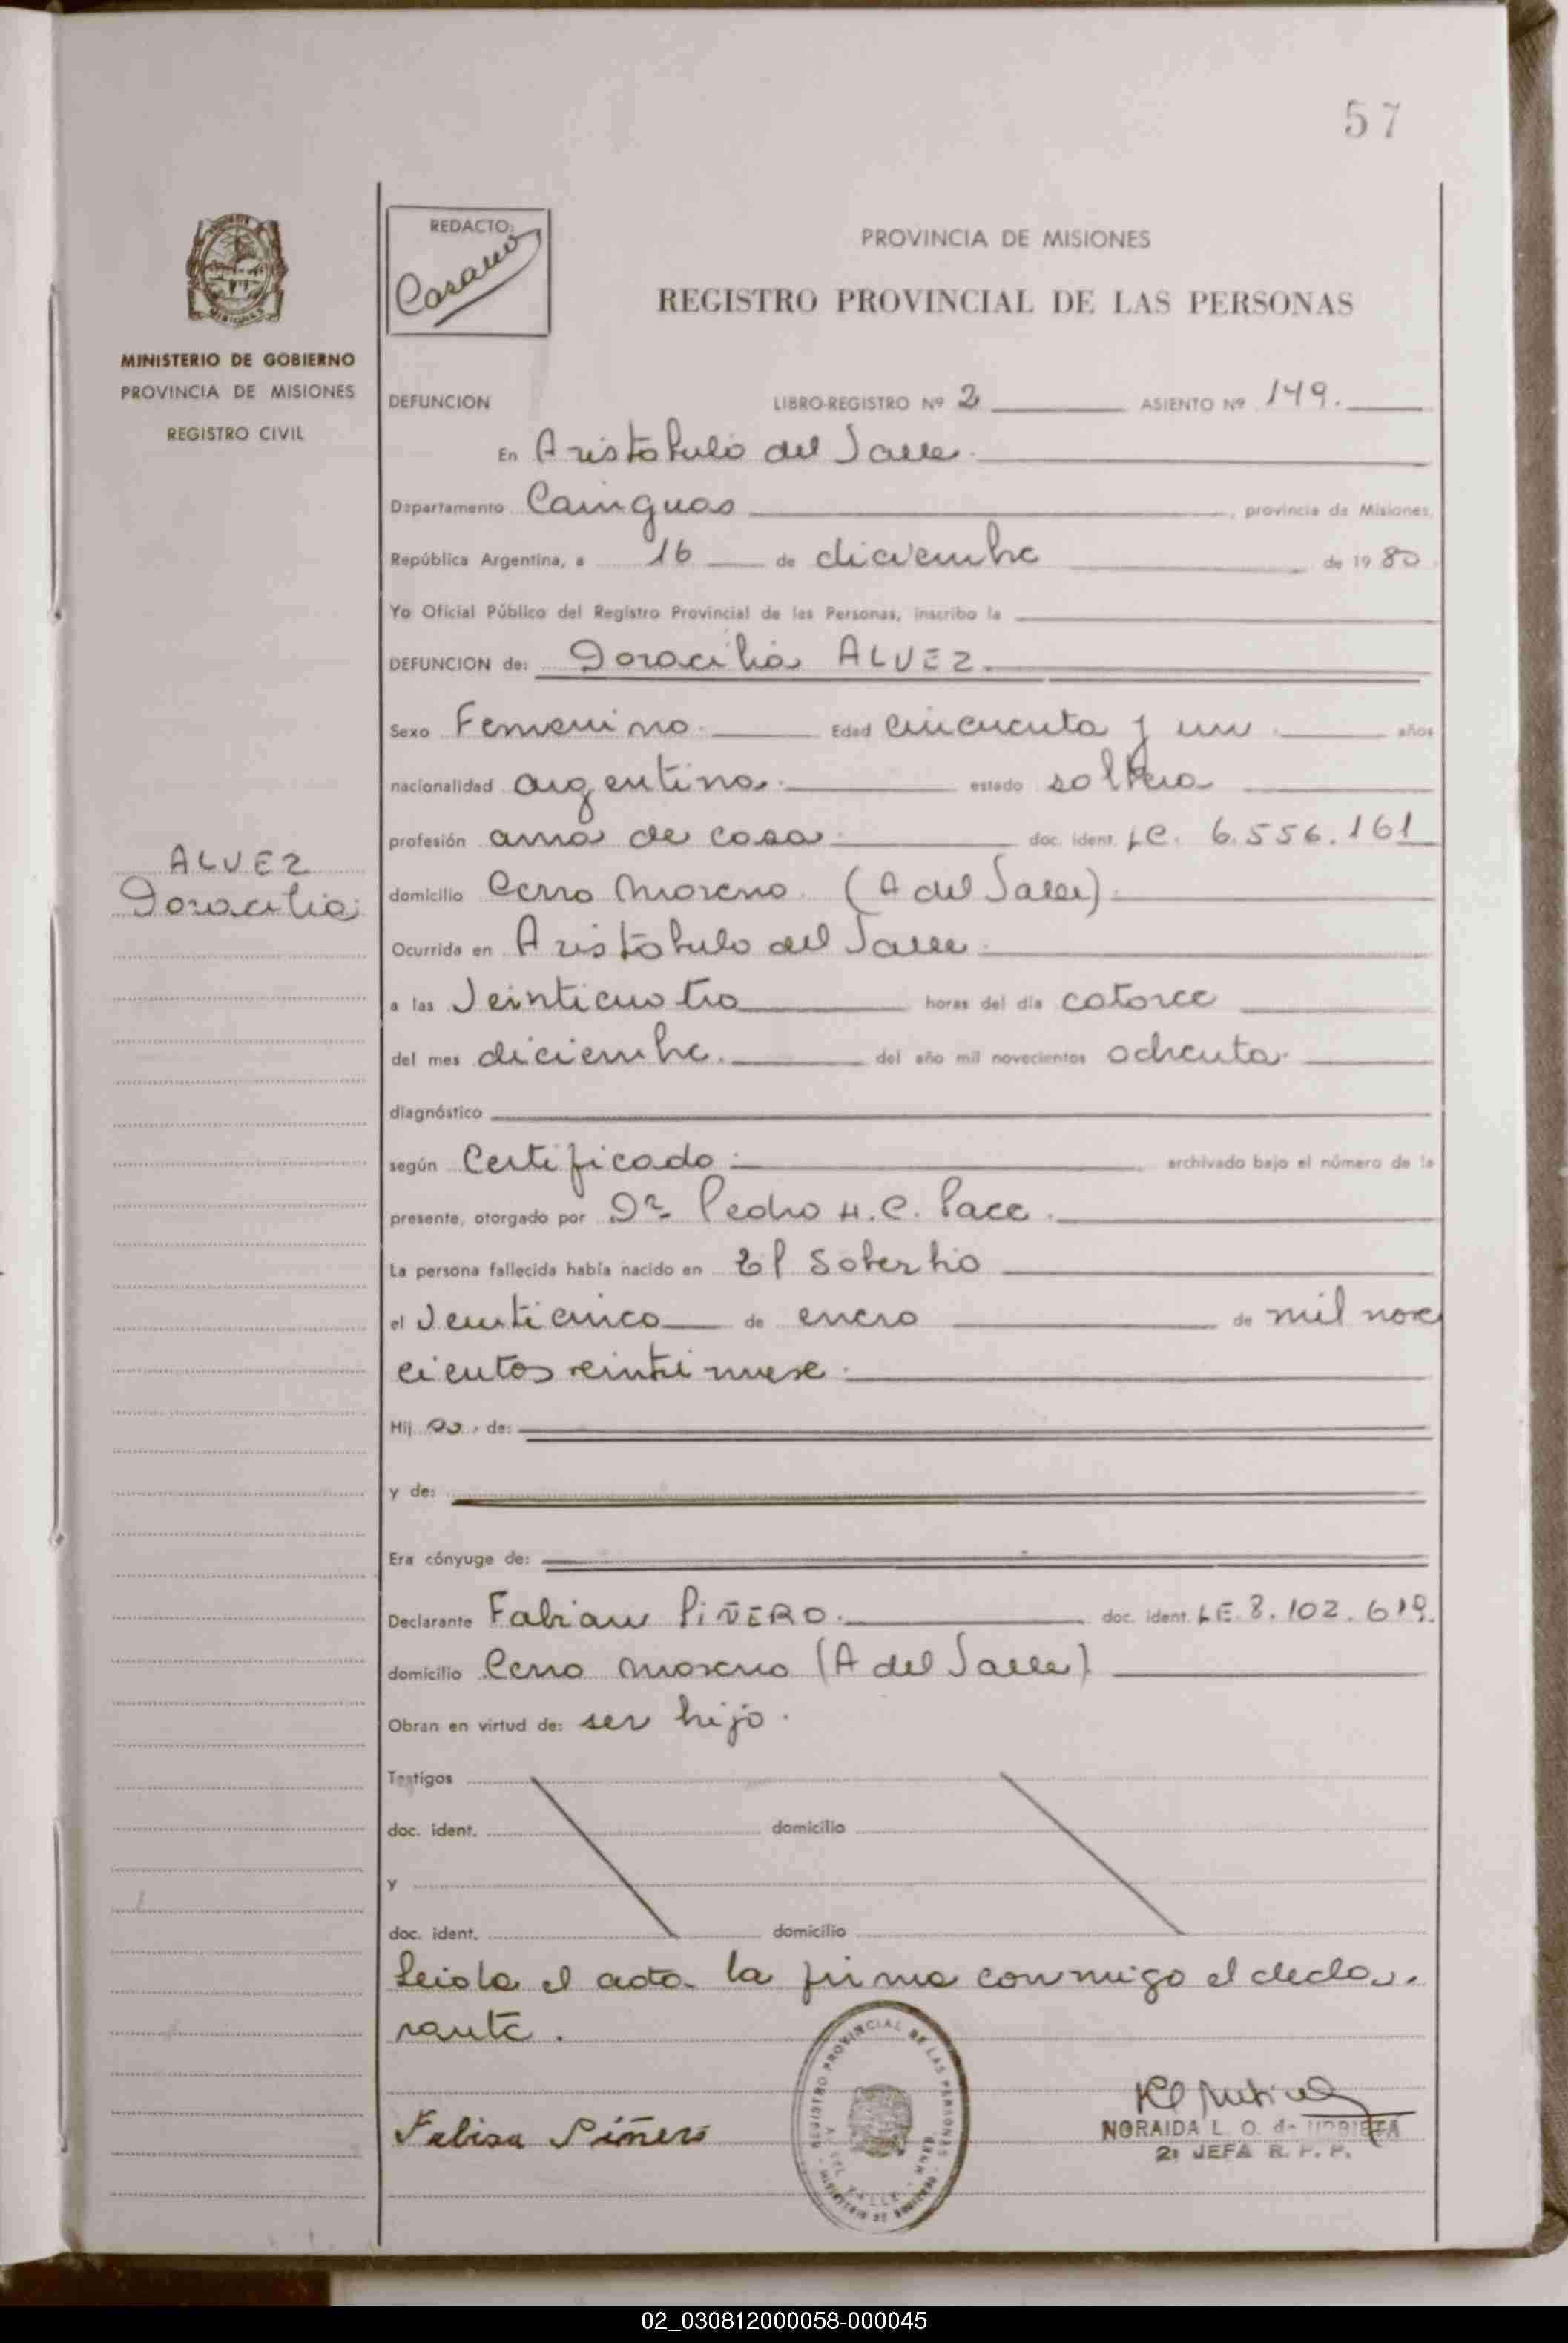 57
REDACTO:
PROVINCIA DE MISIONES
REGISTRO PROVINCIAL DE LAS PERSONAS
MISIONES
MINISTERIO DE GOBIERNO
PROVINCIA DE MISIONES
REGISTRO CIVIL
DEFUNCION LIBRO-REGISTRO Nº 2 ASIENTO Nº 149.
En Aristobulo del Valle.
Departamento Cainguas, provincia de Misiones,
República Argentina, a 16 de diciembre de 1980
Yo Oficial Público del Registro Provincial de las Personas, inscribo la
DEFUNCION de: Doracilia ALVEZ.
Sexo Femenino. Edad cincuenta y un. años
nacionalidad argentina. estado soltera
profesión ama de casa. doc. ident. LC. 6.556.161
ALVEZ
Doracilia
domicilio Cerro Moreno. (A del Valle).
Ocurrida en Aristobulo del Valle.
a las Veinticuatro horas del día catorce
del mes diciembre. del año mil novecientos ochenta.
diagnóstico
según Certificado. archivado bajo el número de la
presente, otorgado por Dr. Pedro H.C. Pace.
La persona fallecida había nacido en El Soberbio
el Veinticinco de enero de mil nove
cientos veintinueve.
Hij a. de:
y de:
Era cónyuge de:
Declarante Fabian PIÑERO. doc. ident. LE 8.102.619.
domicilio Cerro Moreno (A del Valle)
Obran en virtud de: ser hijo.
Testigos
doc. ident. domicilio
y
doc. ident. domicilio
Leida el acta la firma conmigo el decla-
rante.
REGISTRO PROVINCIAL DE LAS PERSONAS
Fabian Piñero
NORAIDA L. O. de URBIETA
2ª JEFA R. P. P.
02_030812000058-000045